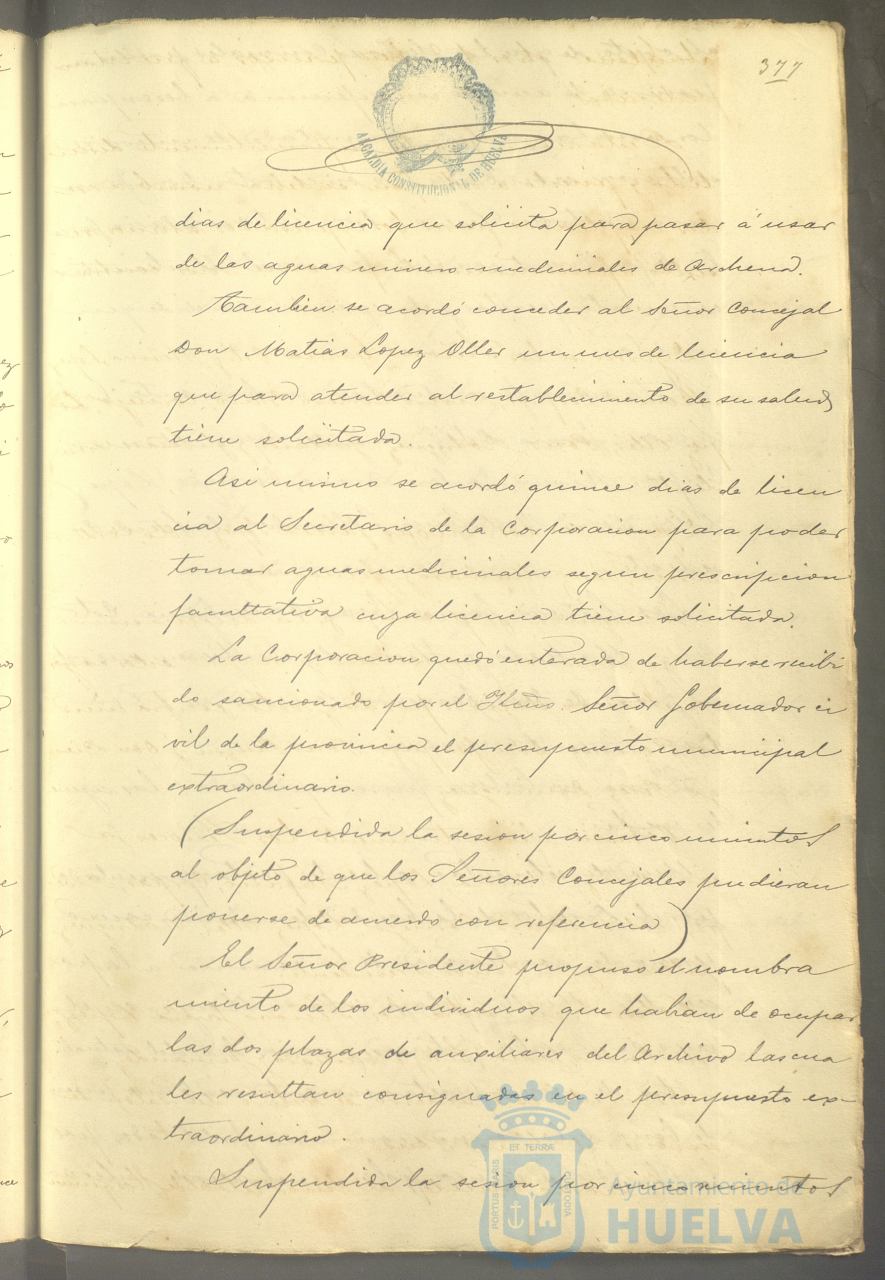 377
ALCALDIA CONSTITUCIONAL DE HUELVA
dias de licencia que solicita para pasar á usar
de las aguas minero-medicinales de Archena.
Tambien se acordó conceder al Señor Concejal
Don Matias Lopez Oller un mes de licencia
que para atender al restablecimiento de su salud
tiene solicitada.
Asi mismo se acordó quince dias de licen
cia al Secretario de la Corporacion para poder
tomar aguas medicinales segun prescripcion
facultativa cuya licencia tiene solicitada.
La Corporacion quedó enterada de haberse recibi
do sancionado por el Ylmo. Señor Gobernador ci
vil de la provincia el presupuesto municipal
extraordinario.
(Suspendida la sesion por cinco minutos
al objeto de que los Señores Concejales pudieran
ponerse de acuerdo con referencia)
El Señor Presidente propuso el nombra
miento de los individuos que habian de ocupar
las dos plazas de auxiliares del Archivo las cua
les resultan consignadas en el presupuesto ex-
traordinario.
Suspendida la sesion por cinco minutos
PORTUS MARIS ET TERRAE CUSTODIA
Ayuntamiento de
HUELVA